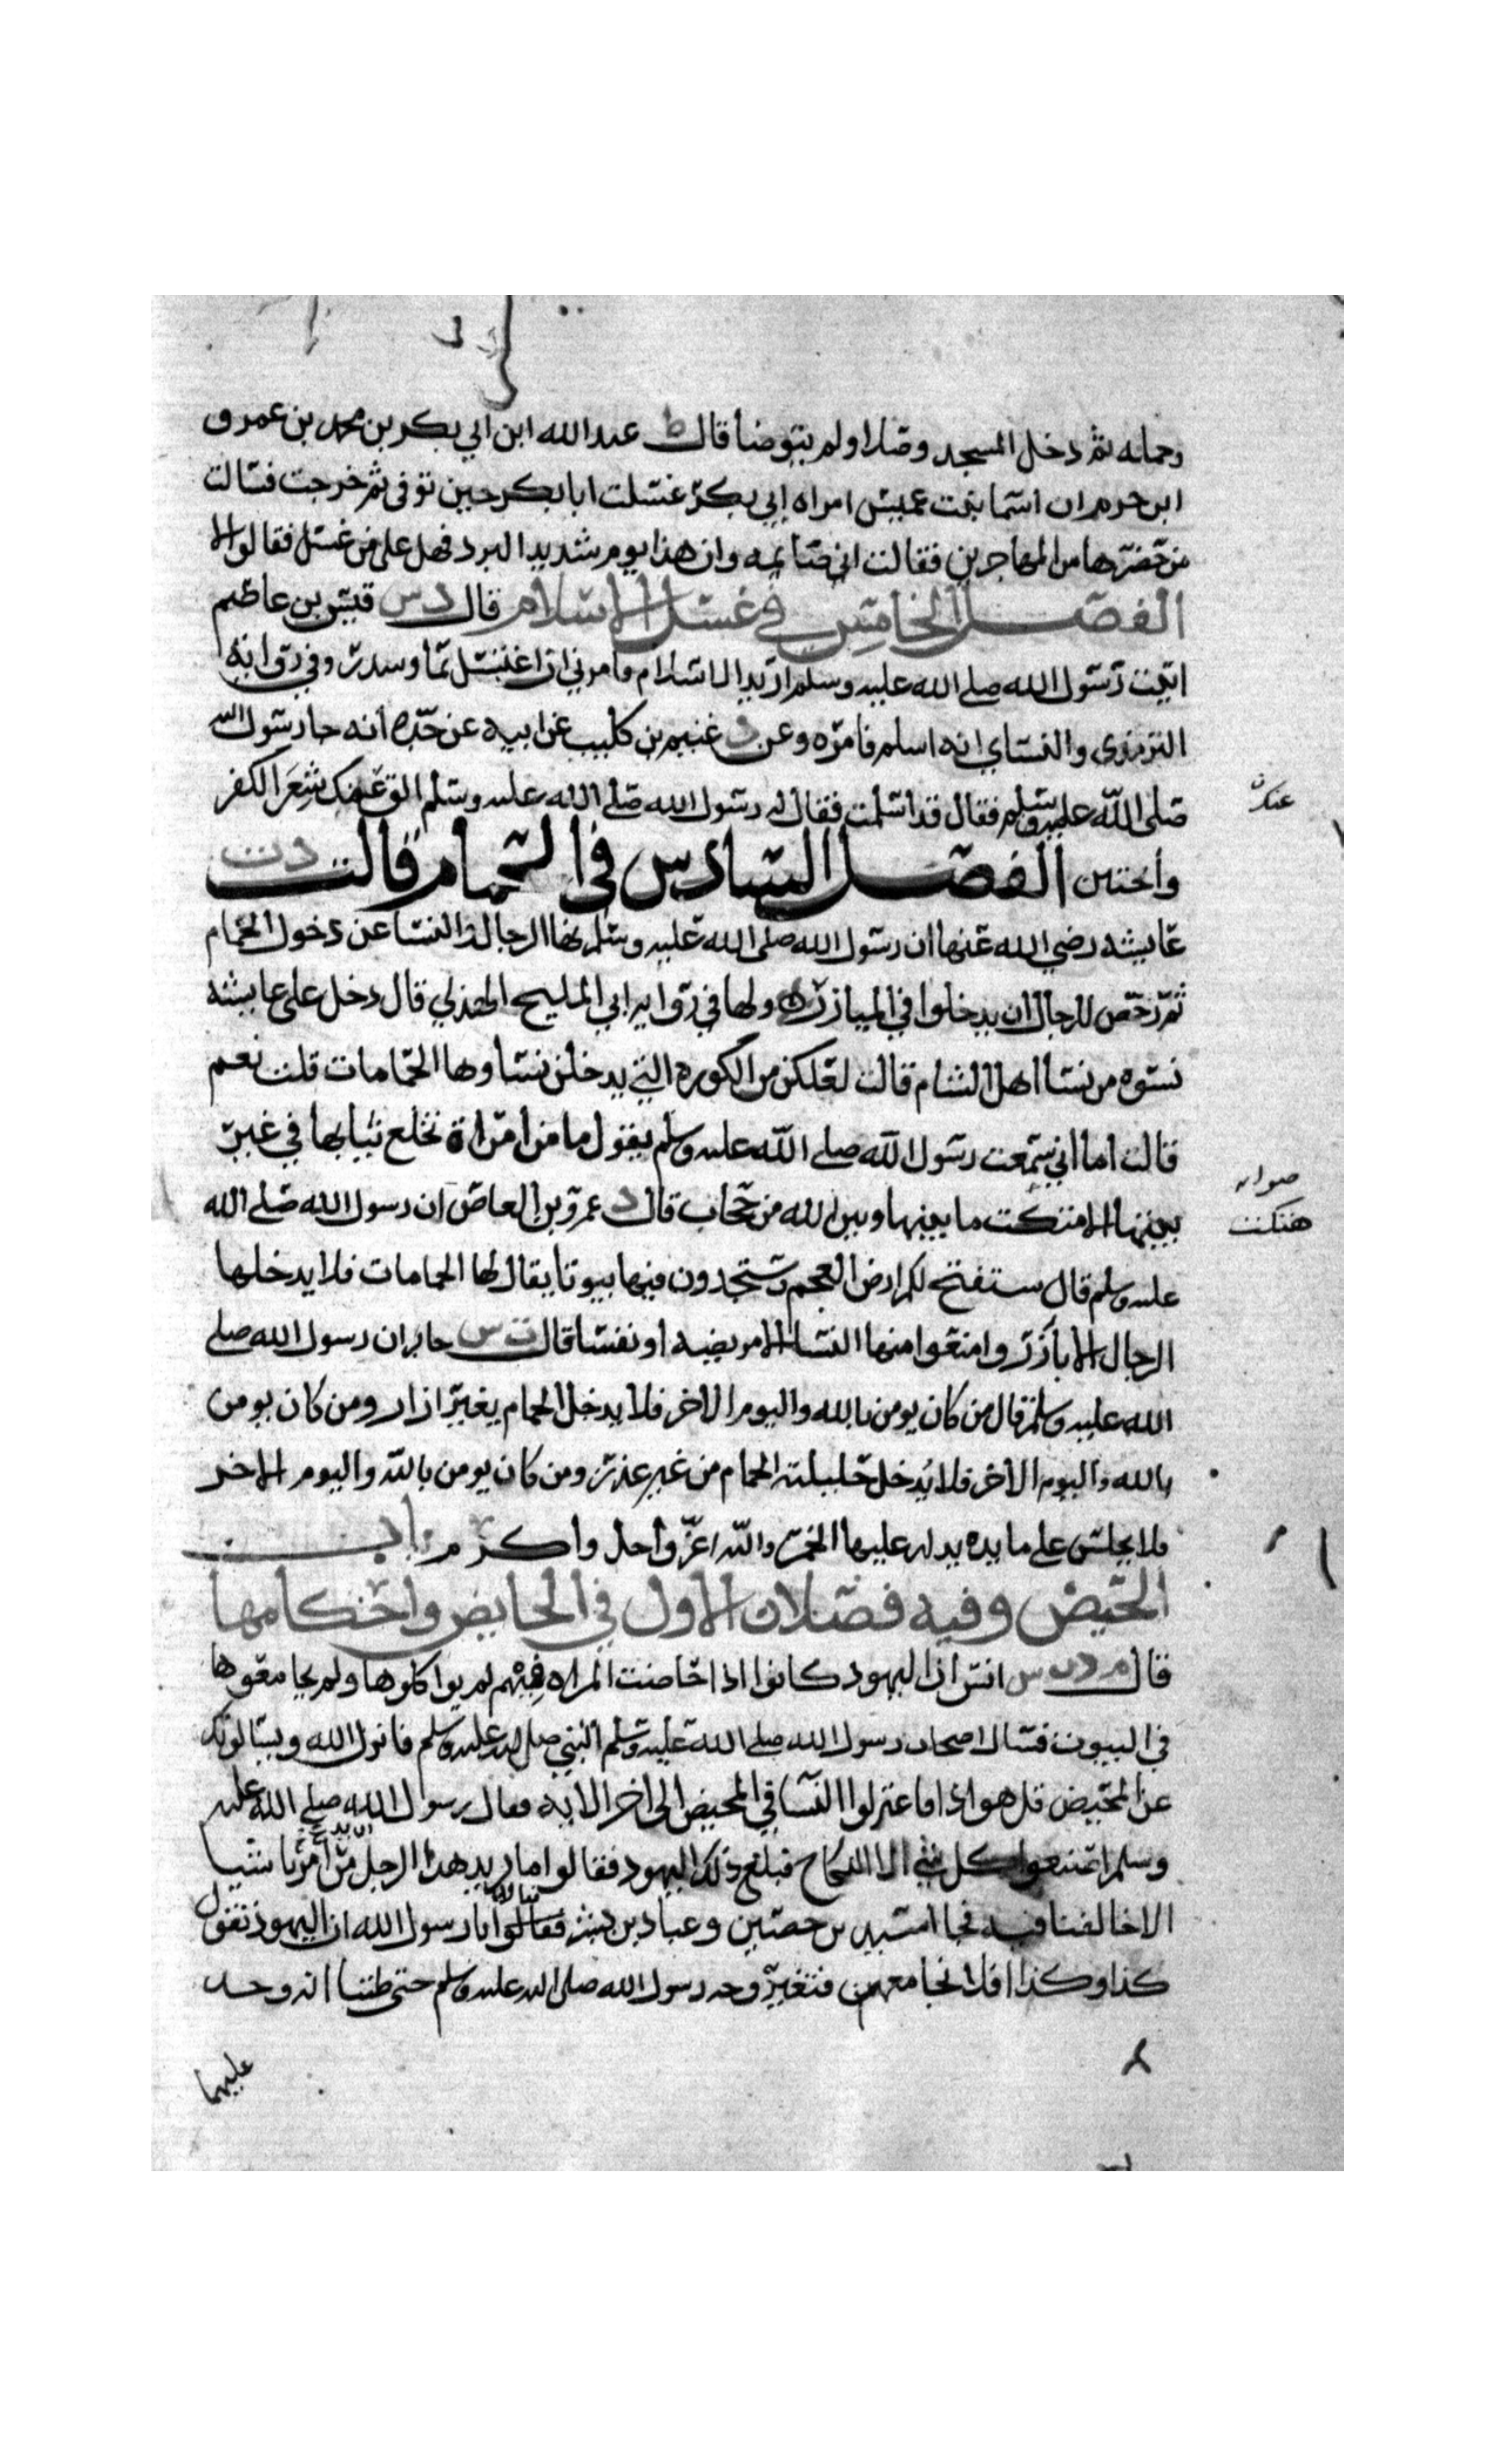 وحمله ثم دخل المسجد وصلا ولم يتوضا قال ط عبد الله ابن ابي بكر بن محمد بن عمرو
ابن حزم ان اسما بنت عميس امراه ابي بكر غسلت ابا بكر حين توفى ثم خرجت فسالت
من حضرها من المهاجرين فقالت اني صايمه وان هذا يوم شديد البرد فهل على من غسل فقالوا لا
الفصل الخامس في غسل الاسلام قال د س قيس بن عاصم
اتيت رسول الله صلى الله عليه وسلم اريد الاسلام فامرني ان اغتسل بما وسدر وفي روايه
الترمذي والنساي انه اسلم فامره وعن د غنيم بن كليب عن ابيه عن جده انه جا رسول الله
صلى الله عليه وسلم فقال قد اسلمت فقال له رسول الله صلى الله عليه وسلم الق عنك شعر الكفر
عنك
واختتن الفصل السادس في الحمام قالت د ت
عايشه رضي الله عنها ان رسول الله صلى الله عليه وسلم نها الرجال والنسا عن دخول الحمام
ثم رخص للرجال ان يدخلوا في الميازر ولها في روايه ابي المليح الهذلي قال دخل على عايشه
نسوه من نسا اهل الشام قالت لعلكن من الكوره التي يدخلن نساوها الحمامات قلن نعم
قالت اما اني سمعت رسول الله صلى الله عليه وسلم يقول ما من امراة تخلع ثيابها في غير
بيتها الا متكت ما بينها وبين الله من حجاب قال د عمرو بن العاص ان رسول الله صلى الله
صوابه
هتكت
عليه وسلم قال ستفتح لكم ارض العجم وستجدون فيها بيوتا يقال لها الحمامات فلا يدخلها
الرجال الا بازر وامنعوا منها النسا الا مريضه او نفسا قال ت س جابر ان رسول الله صلى
الله عليه وسلم قال من كان يومن بالله واليوم الاخر فلا يدخل الحمام بغير ازار ومن كان يومن
بالله واليوم الاخر فلا يدخل حليلته الحمام من غير عذر ومن كان يومن بالله واليوم الاخر
فلا يجلس على مايده يدار عليها الخمر والله اعز واجل واكرم باب
الحيض وفيه فصلان الاول في الحايض واحكامها
قال م د ت س انس ان اليهود كانوا اذا حاضت المراه فيهم لم يواكلوها ولم يجامعوها
في البيوت فسال اصحاب رسول الله صلى الله عليه وسلم النبي صلى الله عليه وسلم فانزل الله ويسالونك
عن المحيض قل هو اذا فاعتزلوا النسا في المحيض الى اخر الايه فقال رسول الله صلى الله عليه
وسلم اصنعوا كل شي الا النكاح فبلغ ذلك اليهود فقالوا ما يريد هذا الرجل ان يدع من امرنا شيا
الا خالفنا فيه فجا اسيد بن حصين وعباد بن بشر فقالا يا رسول الله ان اليهود تقول
كذا وكذا افلا نجامعهن فتغير وجه رسول الله صلى الله عليه وسلم حتى ظننا ان قد وجد
عليهما